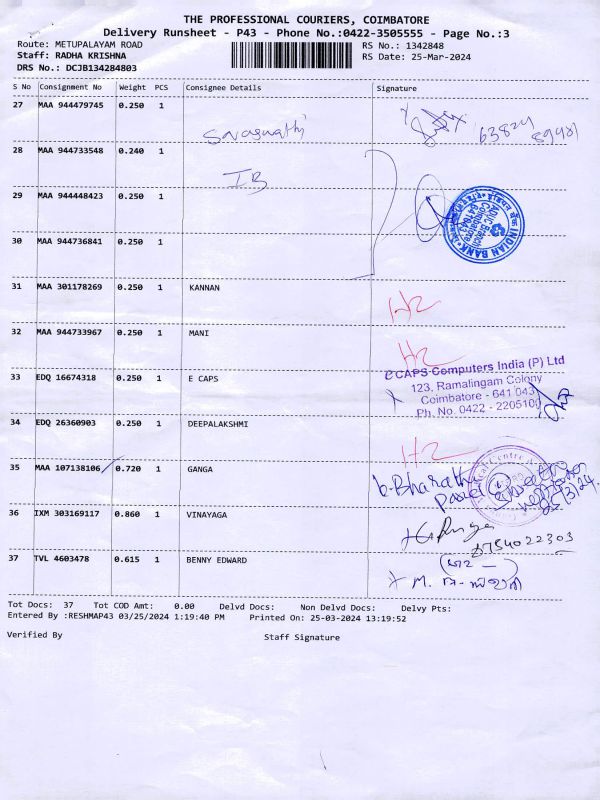 THE PROFESSIONAL COURIERS, COIMBATORE
Delivery Runsheet - P43 - Phone No.:0422-3505555 - Page No.:3
Route: METUPALAYAM ROAD RS No.: 1342848
Staff: RADHA KRISHNA RS Date: 25-Mar-2024
DRS No.: DCJB134284803
S No Consignment No Weight PCS Consignee Details Signature
27 MAA 944479745 0.250 1
Saraswathi 63824
89481
28 MAA 944733548 0.240 1
IB
29 MAA 944448423 0.250 1
INDIAN BANK
Coimbatore
30 MAA 944736841 0.250 1
31 MAA 301178269 0.250 1 KANNAN
32 MAA 944733967 0.250 1 MANI
eCAPS Computers India (P) Ltd
33 EDQ 16674318 0.250 1 E CAPS
123, Ramalingam Colony
Coimbatore - 641 043
Ph. No. 0422 - 2205100
34 EDQ 26360903 0.250 1 DEEPALAKSHMI
35 MAA 107138106 0.720 1 GANGA
b. Bharathi
36 IXM 303169117 0.860 1 VINAYAGA
8754022303
37 TVL 4603478 0.615 1 BENNY EDWARD
Tot Docs: 37 Tot COD Amt: 0.00 Delvd Docs: Non Delvd Docs: Delvy Pts:
Entered By :RESHMAP43 03/25/2024 1:19:40 PM Printed On: 25-03-2024 13:19:52
Verified By Staff Signature